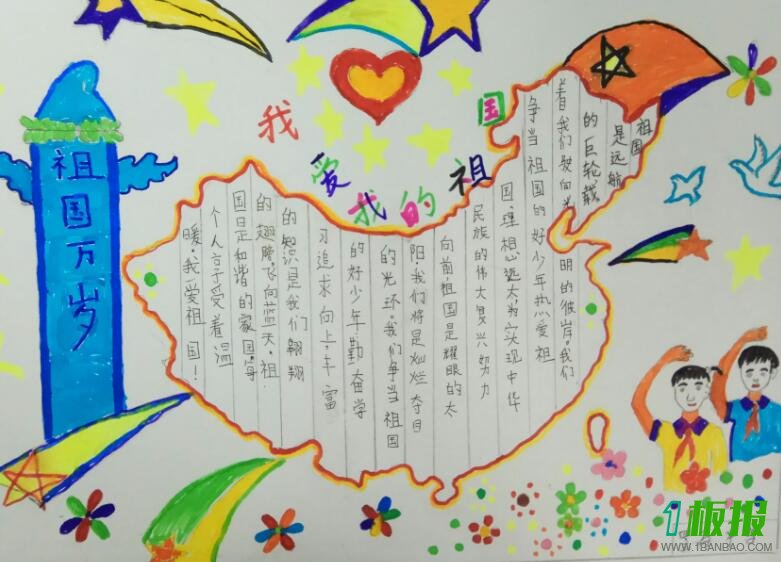 我爱我的祖国
祖国万岁
祖国
是远航
的巨轮载
着我们驶向光
明的彼岸。我们
争当祖国的好少年热爱祖
国·理想远大为实现中华
民族的伟大复兴努力
向前祖国是耀眼的太
阳·我们将是灿烂夺目
的光环·我们争当祖国
的好少年勤奋学
习追求向上·丰富
的知识是我们翱翔
的翅膀·飞向蓝天·祖
国是和谐的家园·每
个人享受着温
暖·我爱祖国！
1板报
WWW.1BANBAO.COM